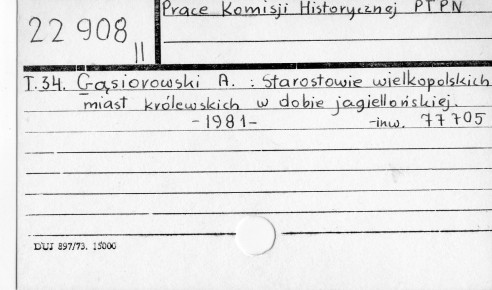 Prace Komisji Historycznej PTPN
22 908
II
T.34. Gąsiorowski A. : Starostowie wielkopolskich
miast królewskich w dobie jagiellońskiej.
-1981-
-inw. 77705
DUJ 897/73. 15000